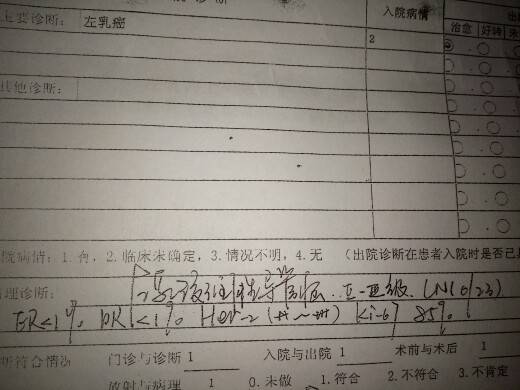 诊断
入院病情
主要诊断: 左乳癌
2
治愈 好转
其他诊断:
院病情: 1.有, 2.临床未确定, 3.情况不明, 4.无 (出院诊断在患者入院时是否已
理诊断: 浸润性导管癌 Ⅱ-Ⅲ级. LN(0/23)
ER<1% PR<1% Her-2 (++~+++) Ki-67 85%
断符合情况 门诊与诊断 1 入院与出院 1 术前与术后 1
放射与病理 1 0.未做 1.符合 2.不符合 3.不肯定